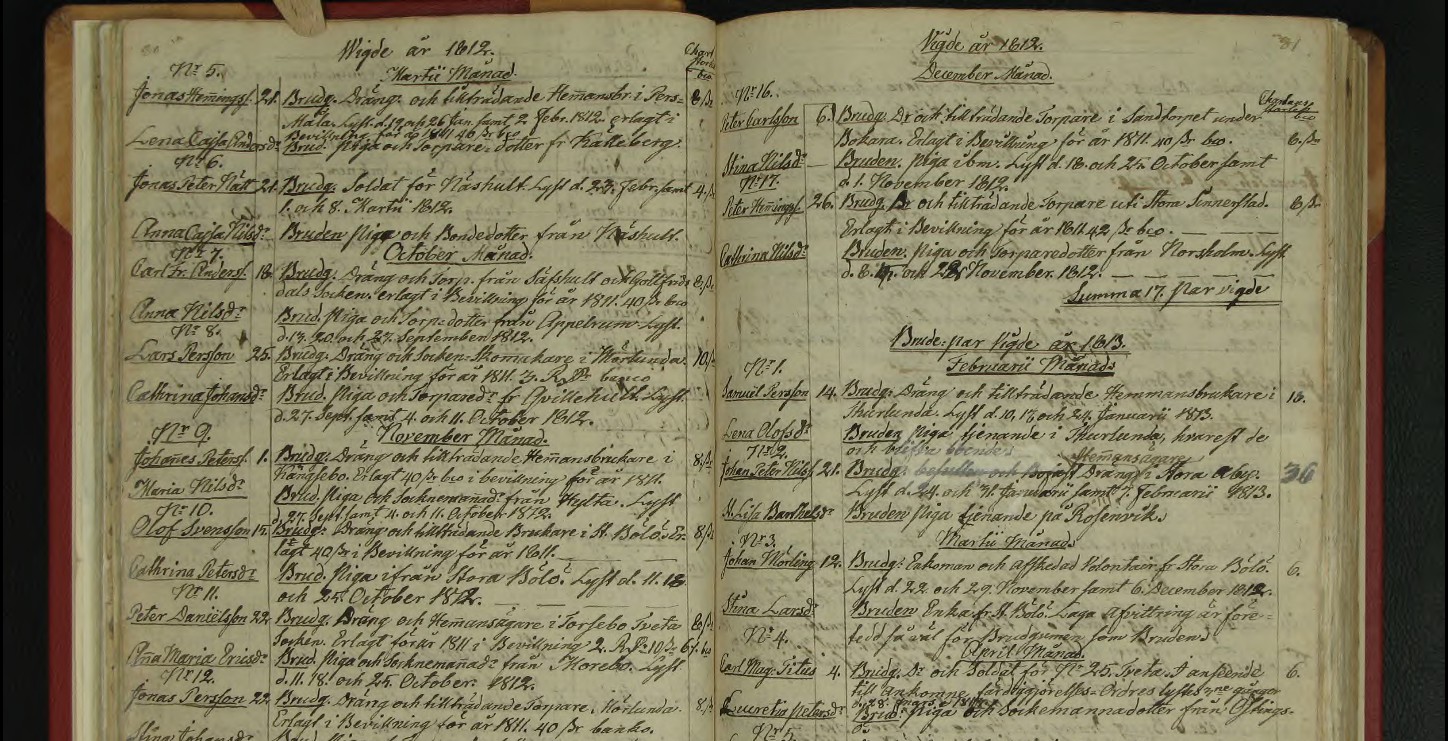 Wigde år 1812.
Martii Månad.
Nr 5.
Jonas Hemmingss. 21. Brudg. Dräng och tillträdande Hemansbr. i Pers-
Måla. Lyst. d. 19 och 26 Jan. samt 2. Febr. 1812. erlagt i 8 ßr
Bevillning för år 1811 40 ßr bco
Lena Cajsa Andersdr Brud. Piga och Torpare-dotter fr Kälkeberg.
Nr 6.
Jonas Peter Nätt 21. Brudg. Soldat för Näshult. Lyst d. 23. Febr. samt 4. ßr
1. och 8. Martii 1812.
Anna Cajsa Nilsdr Bruden Piga och Bondedotter från Näshult.
Nr 7. October Månad.
Carl Fr. Anderss. 18. Brudg. Dräng och Torp. från och
dals Socken. erlagt i Bevillning för år 1811. 40 ßr bco 8 ßr
Anna Nilsdr Brud. Piga och Torp-dotter från Appelrum. Lyst.
d. 13. 20. och 27. September 1812.
Nr 8.
Lars Persson 25. Brudg. Dräng och Socken-Skomakare i Mörlunda. 10 ßr
Erlagt i Bevillning för år 1811. 3. R.Dr banco
Cathrina Johansdr Brud. Piga och Torparedr fr Qvillehult. Lyst
d. 27. Sept. samt 4. och 11. October 1812.
Nr 9. November Månad.
Johannes Peterss. 1. Brudg. Dräng och tillträdande Hemansbrukare i 8 ßr
Hängsebo. Erlagt 40 ßr bco i bevillning för år 1811.
Maria Nilsdr Brud. Piga och Sockneman̄adr från Hylta. Lyst
d. 27. Sept. samt 4. och 11. October. 1812.
Nr 10.
Olof Svensson 15. Brudg. Dräng och tillträdande Brukare i St. Bölö. Er- 8 ßr
lagt 40 ßr i Bevillning för år 1811.
Cathrina Petersdr Brud. Piga ifrån Stora Bölö. Lyst d. 11. 18
och 25. October 1812.
Nr 11.
Peter Daniëlson 22. Brudg. Dräng och Hemansägare i Torsebo Tveta 8 ßr
Socken. Erlagt för år 1811 i Bevillning 2. R.Dr 10 ß 6 r. bco
Ana Maria Ericsdr Brud. Piga och Socknemanadr från Skorebo. Lyst
d. 11. 18. och 25. October. 1812.
Nr 12.
Jonas Persson 22. Brudg. Dräng och tillträdande Torpare i Mörlunda. 8 ßr
Erlagt i Bevillning för år 1811. 40 ßr banko.
Stina Johansdr
Wigde år 1812.
81
December Månad.
Nr 16.
Peter Carlsson 6. Brudg. Dr och tillträdande Torpare i Sandtorpet under
Bokara. Erlagt i Bevillning för år 1811. 40 ßr bco. 8 ßr
Stina Nilsdr Bruden. Piga ibm. Lyst d. 18 och 25. October samt
d. 1. November 1812.
Nr 17.
Peter Hemmingss. 26. Brudg. Dr och tillträdande Torpare uti Stora Sinnerstad. 8 ßr
Erlagt i Bevillning för år 1811. 42 ßr bco.
Cathrina Nilsdr Bruden. Piga och Torparedotter från Norsholm. Lyst
d. 8. 15. och 22. November. 1812.
Summa 17. Par vigde
Brude-par Vigde år 1813.
Februarii Månads
Nr 1.
Samuel Persson 14. Brudg. Dräng och tillträdande Hemmansbrukare i 18.
Thurlunda. Lyst d. 10, 17, och 24. Januarii 1813.
Lena Olofsdr Bruden Piga tjenande i Thurlunda, hvarest de
och blifva boende.
Nr 2. Hemansägare
Johan Peter Nilss. 21. Brudg. och Dräng i Stora Åby. 36
Lyst d. 24. och 31. Januarii samt 7. Februarii 1813.
St. Lisa Barthelsdr Bruden Piga tjenande på Rosenvik.
Nr 3. Martii Månad
Johan Mörling 12. Brudg. Enkoman och Afskedad Volontair fr Stora Bölö. 6.
Lyst d. 22. och 29. November samt 6. December 1812.
Stina Larsdr Bruden Enka fr St. Bölö. Laga Afvittring är före-
tedd så väl för Brudgumen som Bruden.
Nr 4. April Månad.
Carl Mag. Titus 4. Brudg. Dr och Soldat för Nr 25. Tveta. I anseende 6.
till Ankomne färdiggörelses-Ordres lystes gångor
d. 28. 1813.
Lucretia Petersdr Brud. Piga och Sockemannadotter från
Nr 5.